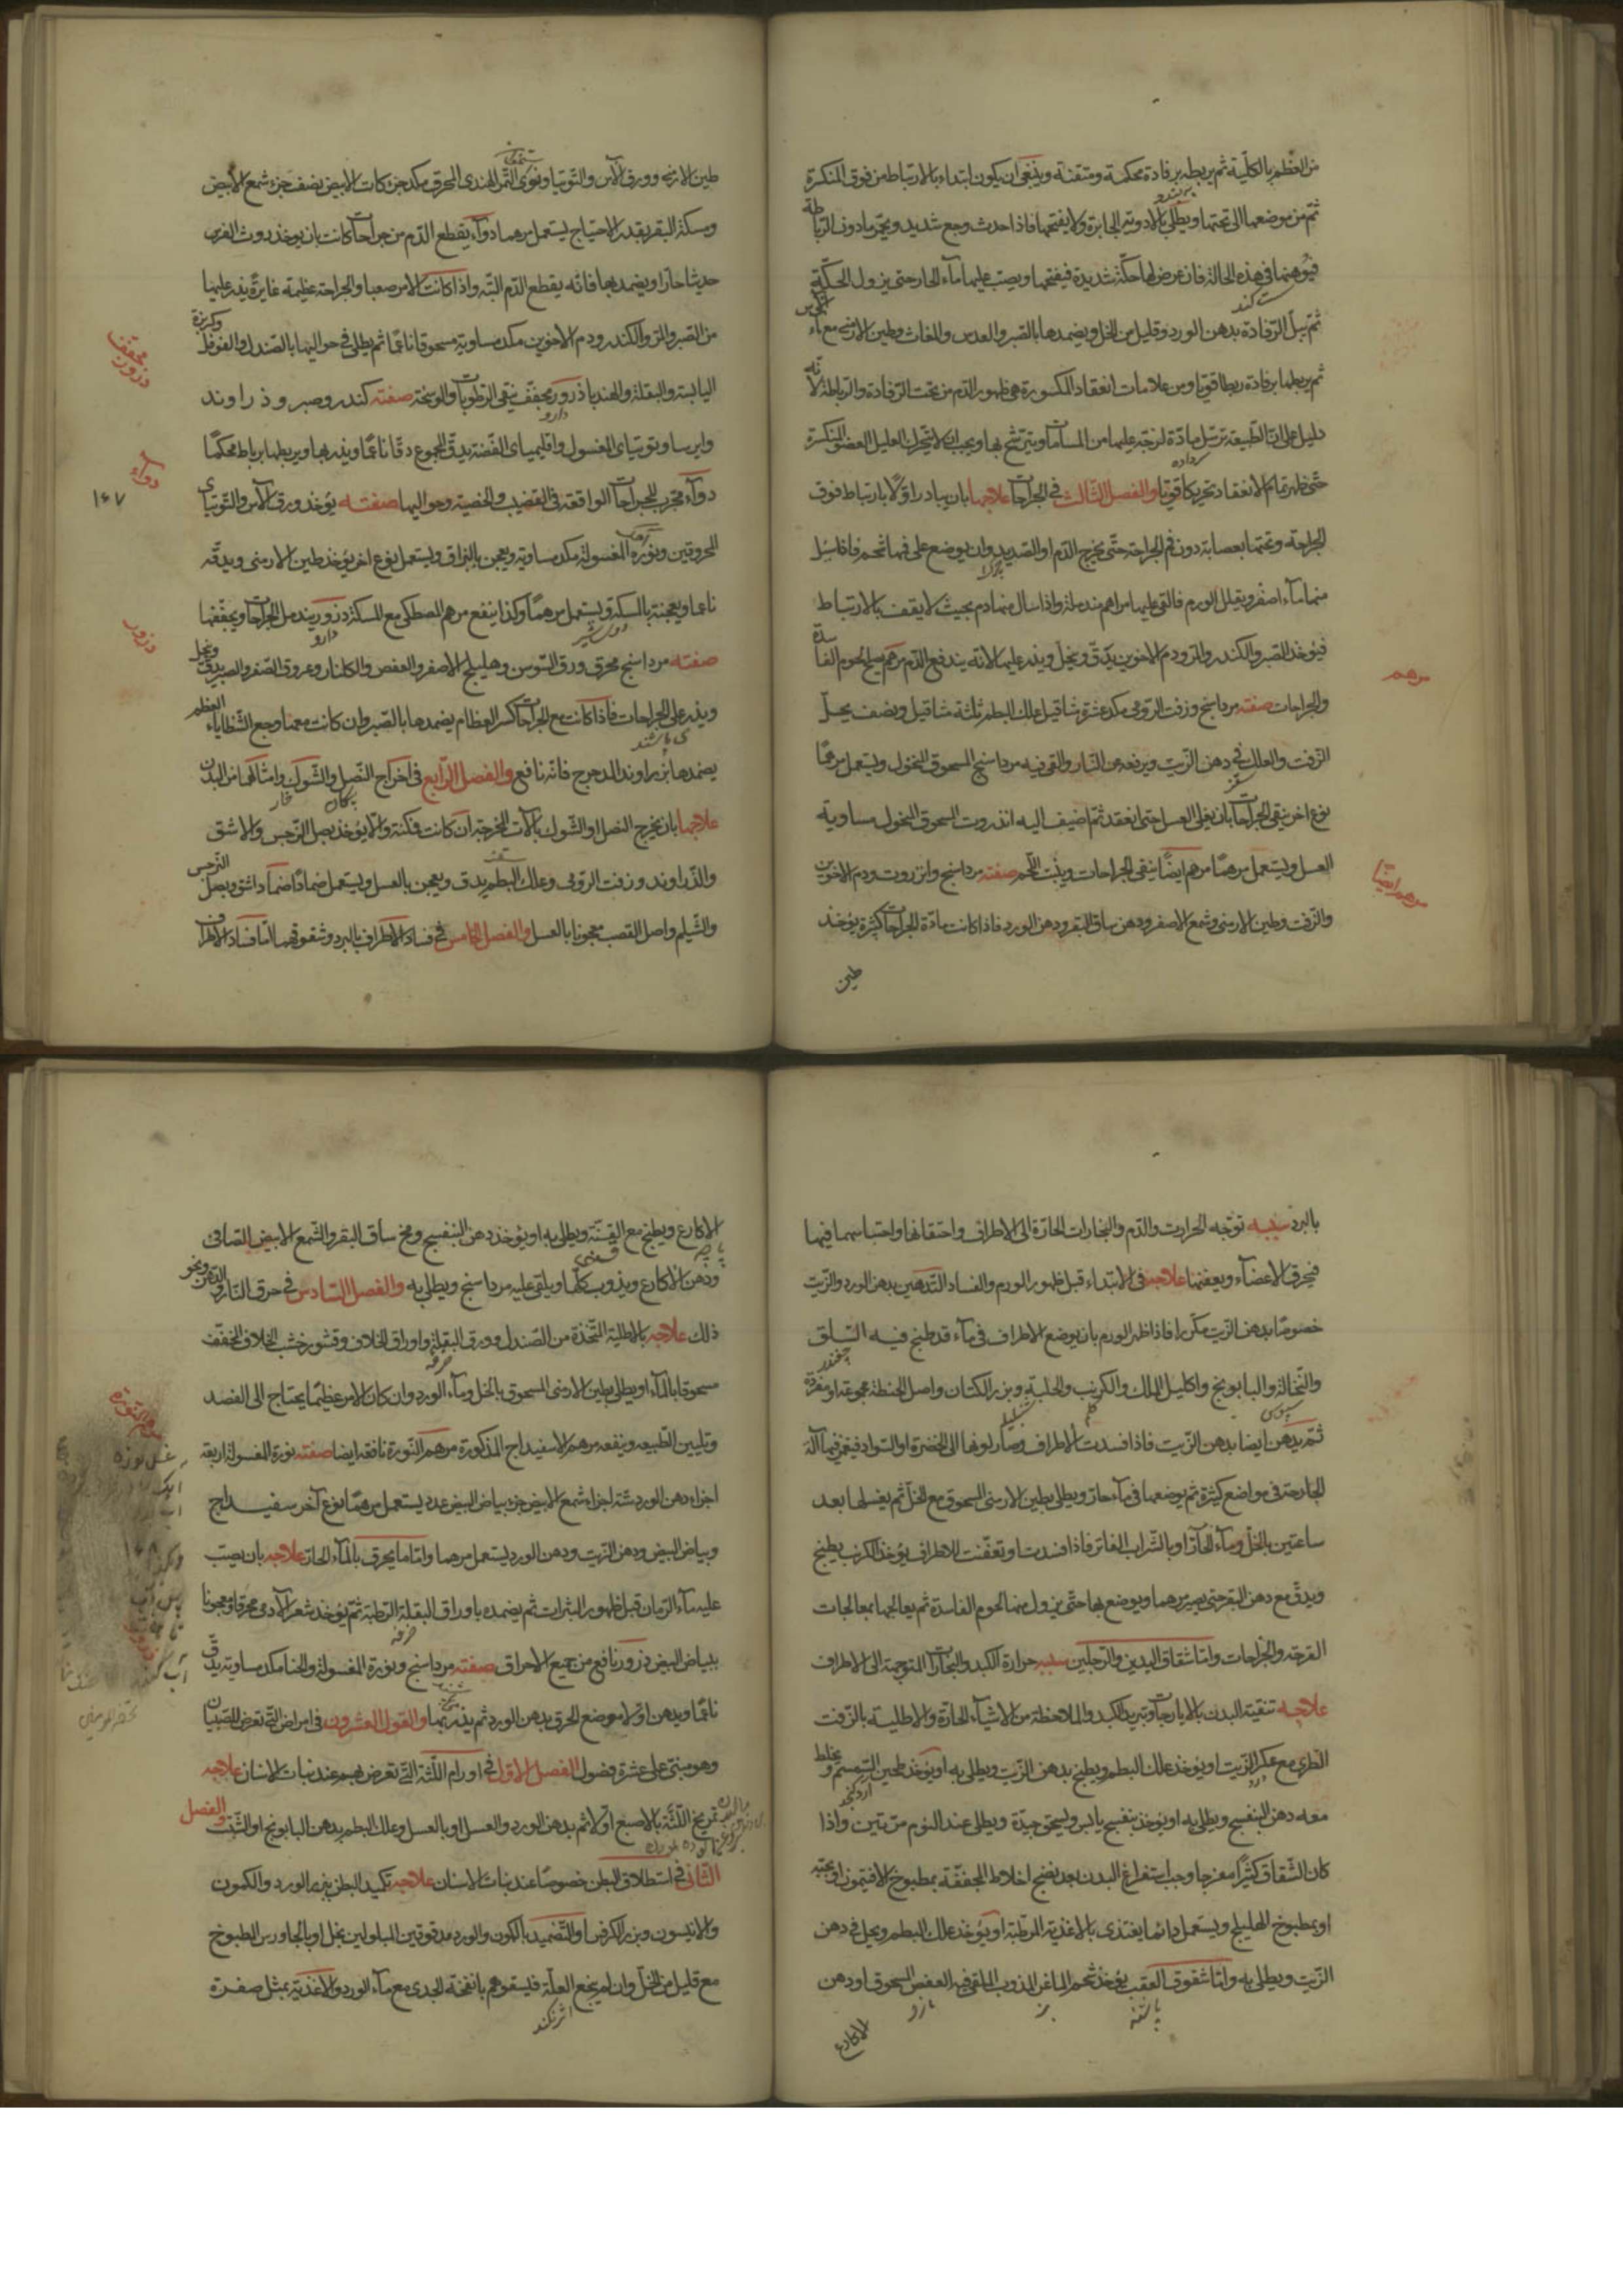 من العظم بالكلية ثم يربطه برفادة محكمة ومتقنة وينبغى ان يكون ابتداء بالارتباط من فوق المنكسرة
ثم من موضعها الى تحتها ويطلى بالادوية الجابرة ولا يفتحها فاذا حدث وجع شديد ويتحير مادون الرباطة
فى هذه الحالة فان عرض لها حكة شديدة فيفتحها ويصب عليها ماء الحار حتى يزول الحكة
ثم يبل الرفادة بدهن الورد وقليل من الخل ويضمدها بالصبر والعدس والمغاث وطين الارمنى مع ماء الآس
ثم يربطها برفادة ربطا قويا ومن علامات انعقاد المكسورة هى ظهور الدم من تحت الرفادة والرباطة لانه
دليل على ان الطبيعة ترسل مادة لزجة عليها من المسامات ويترشح بها ويجب ان لا يتحرك العليل العضو المنكسرة
حتى ظهر تمام الانعقاد تحريكا قويا والفصل الثالث فى الجراحات علاجها بان يبادر اولا بارتباط فوق
الجراحة وتحتها بعصابة دون فم الجراحة حتى يخرج الدم او الصديد وان يوضع على فمها شحم فاذا سيل
منها ماء اصفر ويقلل الورم فالقى عليها مراهم مندملة واذا سال منها دم بحيث لا يقف بالارتباط
فيؤخذ الصبر والكندر والمر ودم الاخوين يدق ويخل ويذر عليها لانه يندفع الدم مرهم يصلح لحوم الفاسدة
والجراحات صفته مرداسنج وزفت الرومى مكد عشرة مثاقيل علك البطم ثلثة مثاقيل ونصف يحل
الزفت والعلك فى دهن الزيت ويرفعه عن النار والقى فيه مرداسنج المسحوق المنخول ويستعمل مرهما
نوع اخر ينقى الجراحات بان يغلى العسل حتى انعقد ثم اضيف اليه انذروت المسحوق المنخول مساوية
العسل ويستعمل مرهما مرهم ايضا ينقى الجراحات وينبت اللحم صفته مرداسنج وانزروت ودم الاخوين
والزفت وطين الارمنى وشمع الاصفر ودهن ساق البقر ودهن الورد فاذا كانت مادة الجراحات كثيرة يؤخذ
طين
مرهم
مرهم ايضا
طين الارمنى وورق الآس والتوتيا ونوى التمر الهندى المحرق مكد جزء كات الابيض نصف جزء شمع الابيض
ومسكة البقر بقدر الاحتياج يستعمل مرهما دواء يقطع الدم من جراحات كانت بان يؤخذ روث الفرس
حديثا حارا ويضمد بها فانه يقطع الدم البته واذا كانت الامر صعبا والجراحة عظيمة غايرة يذر عليها
من الصبر والمر والكندر ودم الاخوين مكد مساوية مسحوقا ناعما ثم يطلى فى حواليها بالصندل والفوفل وكزبرة
اليابسة والبقلة والهندبا ذرور مجفف ينقى الرطوبات والوسخة صفته كندر وصبر وذراوند
وايرسا وتوتياى المغسول واقليمياى الفضة يدق المجموع دقا ناعما ويذر بها ويربطها برباط محكما
دواء مجرب للجراحات الواقعة فى القضيب والخصية وحواليها صفته يؤخذ ورق الآس والتوتياى
المحروقين ونورة المغسولة مكد مساوية ويعجن بالبزاق ويستعمل نوع اخر يؤخذ طين الارمنى ويدقه
ناعما ويعجنه بالمسكة ويستعمل مرهما وكذا ينفع مرهم المصطكى مع المسكة ذرور يندمل الجراحات ويجففها
صفته مرداسنج محرق ورق السوسن وهليلج الاصفر والعفص والكلنار وعروق الصفر والصبر يدق ويخل
ويذر على الجراحات فاذا كانت مع الجراحات كسر العظام يضمدها بالصبر وان كانت معها وجع الشظاياء العظم
يضمدها بزراوند المدحرج فانه نافع والفصل الرابع فى اخراج النصل والشوك وامثالهما من البدن
علاجها بان يخرج النصل او الشوك بآلات المخرجة ان كانت ممكنة والا يؤخذ بصل النرجس والاشق
والذراوند وزفت الرومى وعلك البطم يدق ويعجن بالعسل ويستعمل ضمادا ضماد اشق وبصل النرجس
والشيلم واصل القصب معجونا بالعسل والفصل الخامس فى فساد الاطراف بالبرد وشقوقهما اما فساد الاطراف
مجفف ذرور
دواء
١٤٧
ذرور
بالبرد سببه توجه الحرارت والدم والبخارات الحارة الى الاطراف واحتقانها واحتباسها فيها
فيحرق الاعضاء ويعفنها علاجه فى الابتداء قبل ظهور الورم والفساد التدهين بدهن الورد والزيت
خصوصا بدهن الزيت مكررا فاذا ظهر الورم بان يوضع الاطراف فى ماء قد طبخ فيه السلق
والنخالة والبابونج واكليل الملك والكرنب والحلبة وبزر الكتان واصل الحنطة مجموعة او مفردة
ثم يدهن ايضا بدهن الزيت فاذا فسدت الاطراف وصار لونها الى الخضرة او السواد فيغمز فيها آلة
الجارحة فى مواضع كثيرة ثم يوضعها فى ماء حار ويطلى بطين الارمنى المسحوق مع الخل ثم يغسلها بعد
ساعتين بالخل وماء الحار او بالشراب الفاتر فاذا افسدت او تعفنت الاطراف يؤخذ الكرنب يطبخ
ويدق مع دهن البقر حتى يصير مرهما ويوضع بها حتى يزول منها لحوم الفاسدة ثم يعالجها بمعالجات
القرحة والجراحات واما شقاق اليدين والرجلين سببه حرارة الكبد والبخارات المتوجهة الى الاطراف
علاجه تنقية البدن بالايارجات وتبريد الكبد والملاحظة من الاشياء الحارة والاطلية بالزفت
الطرى مع عكر الزيت او يؤخذ علك البطم ويطبخ بدهن الزيت ويطلى به او يؤخذ طحين السمسم ويخلط
معه دهن البنفسج ويطلى به او يؤخذ بنفسج يابس ويسحق جيدة ويطلى عند النوم مرتين واذا
كان الشقاق كثيرا معرجا وجب استفراغ البدن بعد نضج اخلاط المجففة بمطبوخ الافتيمون او بحبه
او بمطبوخ الهليلج ويستعمل دائما يغتذى بالاغذية المرطبة او يؤخذ علك البطم ويحل فى دهن
الزيت ويطلى به واما شقوق العقب يؤخذ شحم الماعز المذوب الملقى فيه العفص المسحوق او دهن
الاكارع
الاكارع ويطبخ مع القنة ويطلى به او يؤخذ دهن البنفسج ومخ ساق البقر والشمع الابيض الصافى
ودهن الاكارع ويذوب كلها ويلقى عليه مرداسنج ويطلى به والفصل السادس فى حرق النار والدهن ونحو
ذلك علاجه بالاطلية المتخذة من الصندل وورق البقلة واوراق الخلاف وقشور خشب الخلاف المجفف
مسحوقا بالماء او يطلى بطين الارمنى المسحوق بالخل وماء الورد وان كان الامر عظيما يحتاج الى الفصد
وتليين الطبيعه وينفعه مرهم الاسفيداج المذكورة مرهم النورة نافعه ايضا صفته نورة المغسولة اربعة
اجزاء دهن الورد ستة اجزاء شمع الابيض جزء بياض البيض عدد يستعمل مرهما نوع آخر سفيداج
وبياض البيض ودهن الزيت ودهن الورد يستعمل مرهما واما ما يحرق بالماء الحار علاجه بان يصب
عليه ماء الرمان قبل ظهور البثرات ثم يضمده باوراق البقلة الرطبة ثم يؤخذ شعر الآدمى محرقا ومعجونا
ببياض البيض ذرور نافع من جميع الاحراق صفته مرداسنج ونورة المغسولة والحنا مكد مساوية يدق
ناعما ويدهن اولا موضع الحرق بدهن الورد ثم يذر بها والقول العشرون فى امراض التى تعرض للصبيان
وهو مبنى على عشرة فصول الفصل الاول فى اورام اللثة التى تعرض لهم عند نبات الاسنان علاجه
تمريخ اللثة بالاصبع اولا ثم بدهن الورد والعسل او بالعسل وعلك البطم بدهن البابونج او الشبت والفصل
الثانى فى استطلاق البطن خصوصا عند نبات الاسنان علاجه تكميد البطن ببزر الورد والكمون
والانيسون وبزر الكرفس او التضميد بالكمون والورد مدقوقين المبلولين بخل او بالجاورس المطبوخ
مع قليل من الخل وان لم ينجع العلة فليسقوهم بانفخة الجدى مع ماء الورد والاغذية بمثل صفرة
مرهم النورة